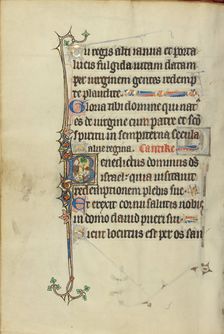 Tu regis alti ianua et porta
lucis fulgida uitam datam
per uirginem gentes redemp
te plaudite.
Gloria tibi domine qui nat
es de uirgine cum patre et sco
spiritu in sempiterna secula
Cantike
Benedictus dominus ds
israel quia uisitauit
redemptionem plebis sue
Et erexit cornu salutis nobis
in domo dauid pueri sui
Sicut locutus est per os san